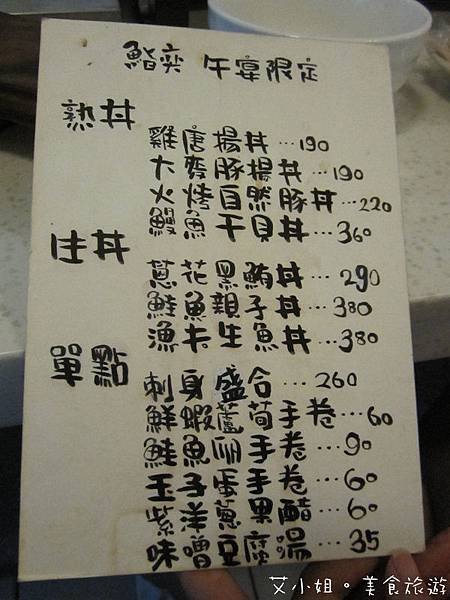 鮨奕 午宴限定
熟丼
雞唐揚丼…190
大麥豚揚丼…190
火烤自然豚丼…220
鰻魚干貝丼…360
生丼
蔥花黑鮪丼…290
鮭魚親子丼…380
漁夫生魚丼…380
單點
刺身盛合…260
鮮蝦蘆荀手卷…60
鮭魚卵手卷…90
玉子蛋手卷…60
紫洋蔥果醋…60
味噌豆腐湯…35
艾小姐。美食旅遊